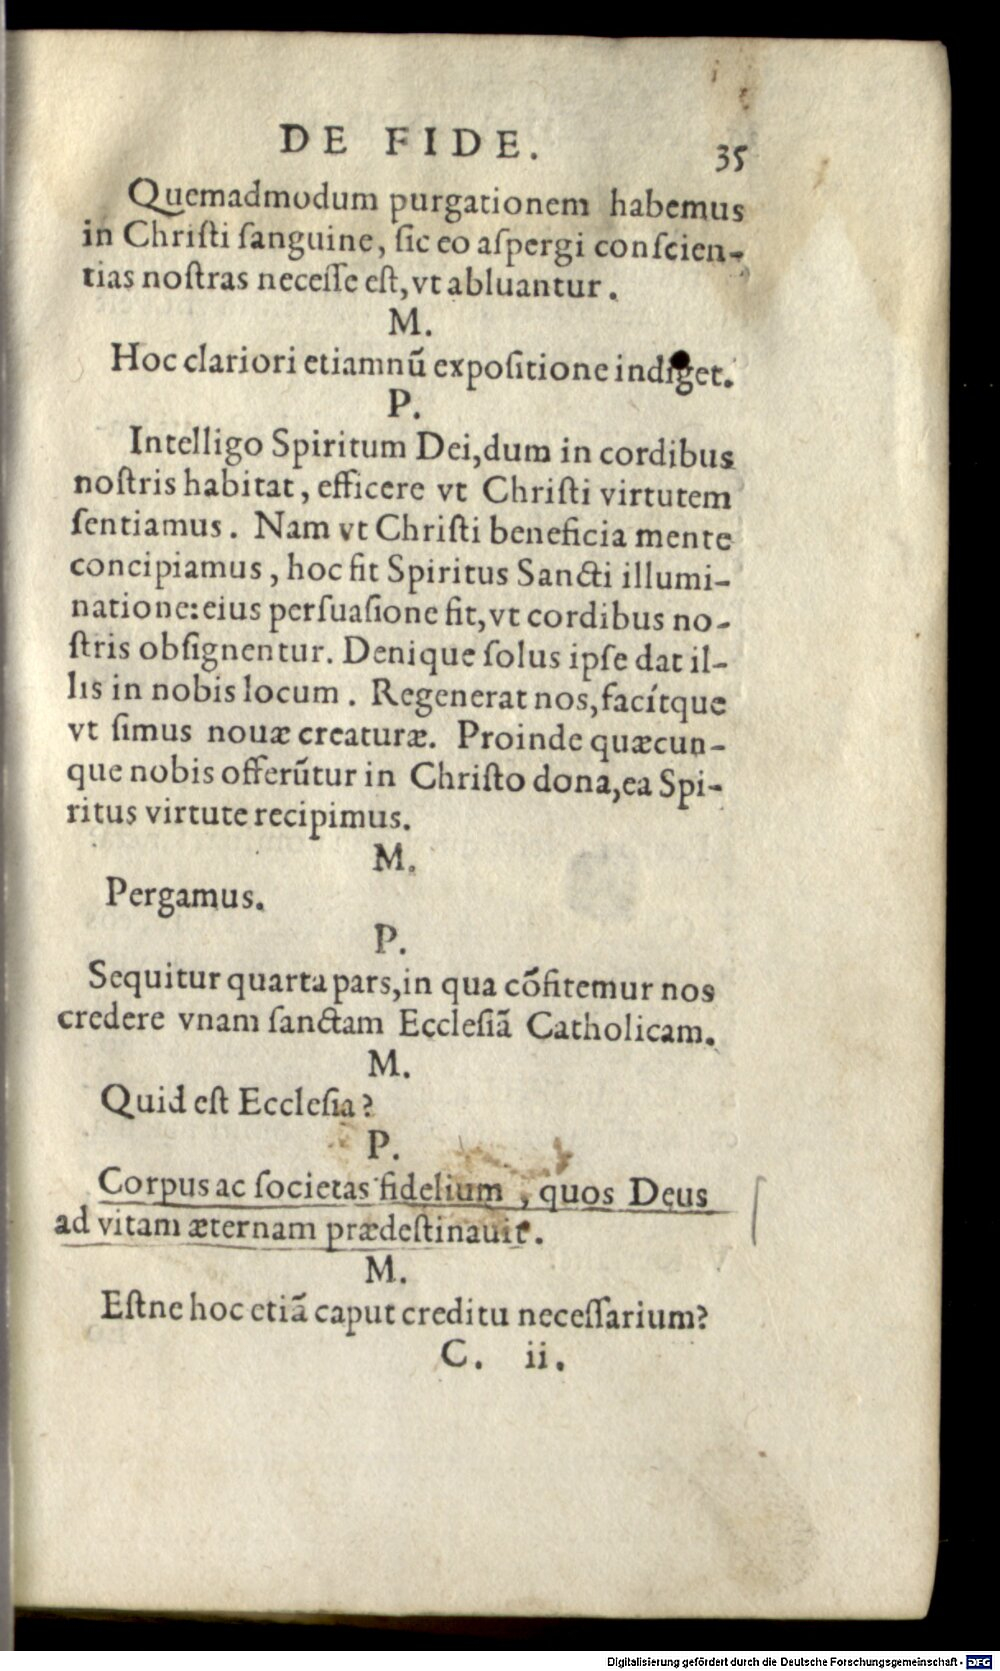 DE FIDE. 35
Quemadmodum purgationem habemus
in Chriſti ſanguine, ſic eo aſpergi conſcien-
tias noſtras neceſſe eſt, vt abluantur.
M.
Hoc clariori etiamnũ expoſitione indiget.
P.
Intelligo Spiritum Dei, dum in cordibus
noſtris habitat, efficere vt Chriſti virtutem
ſentiamus. Nam vt Chriſti beneficia mente
concipiamus, hoc fit Spiritus Sancti illumi-
natione: eius perſuaſione fit, vt cordibus no-
ſtris obſignentur. Denique ſolus ipſe dat il-
lis in nobis locum. Regenerat nos, facítque
vt ſimus nouæ creaturæ. Proinde quæcun-
que nobis offerũtur in Chriſto dona, ea Spi-
ritus virtute recipimus.
M.
Pergamus.
P.
Sequitur quarta pars, in qua cõfitemur nos
credere vnam ſanctam Eccleſiã Catholicam.
M.
Quid eſt Eccleſia?
P.
Corpus ac ſocietas fidelium, quos Deus
ad vitam æternam prædeſtinauit.
M.
Eſtne hoc etiã caput creditu neceſſarium?
C. ii.
Digitalisierung gefördert durch die Deutsche Forschungsgemeinschaft - DFG